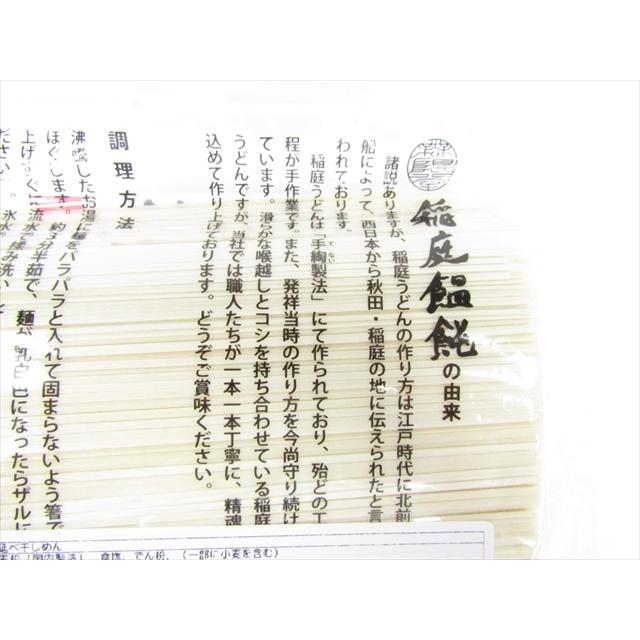 稲庭饂飩の由来
諸説ありますが、稲庭うどんの作り方は江戸時代に北前
船によって、西日本から秋田・稲庭の地に伝えられたと言
われております。
稲庭うどんは「手綯製法」にて作られており、殆どの工
程が手作業です。また、発祥当時の作り方を今尚守り続け
ています。滑らかな喉越しとコシを持ち合わせている稲庭
うどんですが、当社では職人たちが一本一本丁寧に、精魂
込めて作り上げております。どうぞご賞味ください。
調理方法
沸騰したお湯に麺をパラパラと入れて固まらないよう箸で
ほぐします。約3分半茹で、麺が乳白色になったらザルに
上げ、すぐに流水で揉み洗いし
ださい。氷水
延べ干しめん
(国内製造)、食塩、でん粉、(一部に小麦を含む)